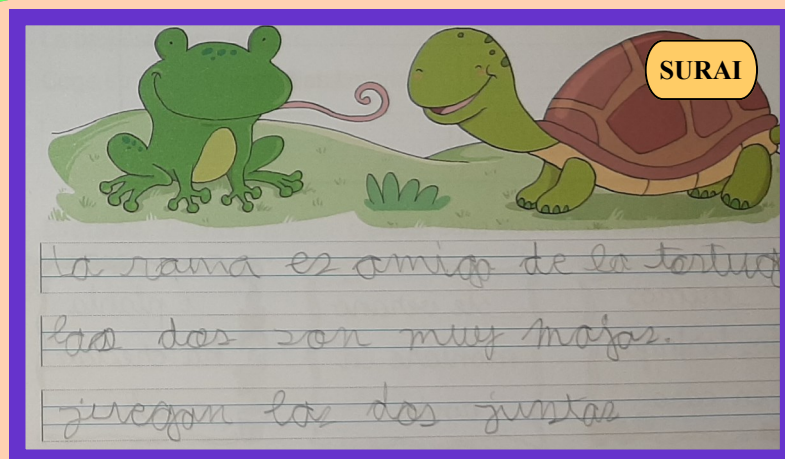 SURAI
la rana es amigo de la tortug
las dos son muy majas.
juegan las dos juntas